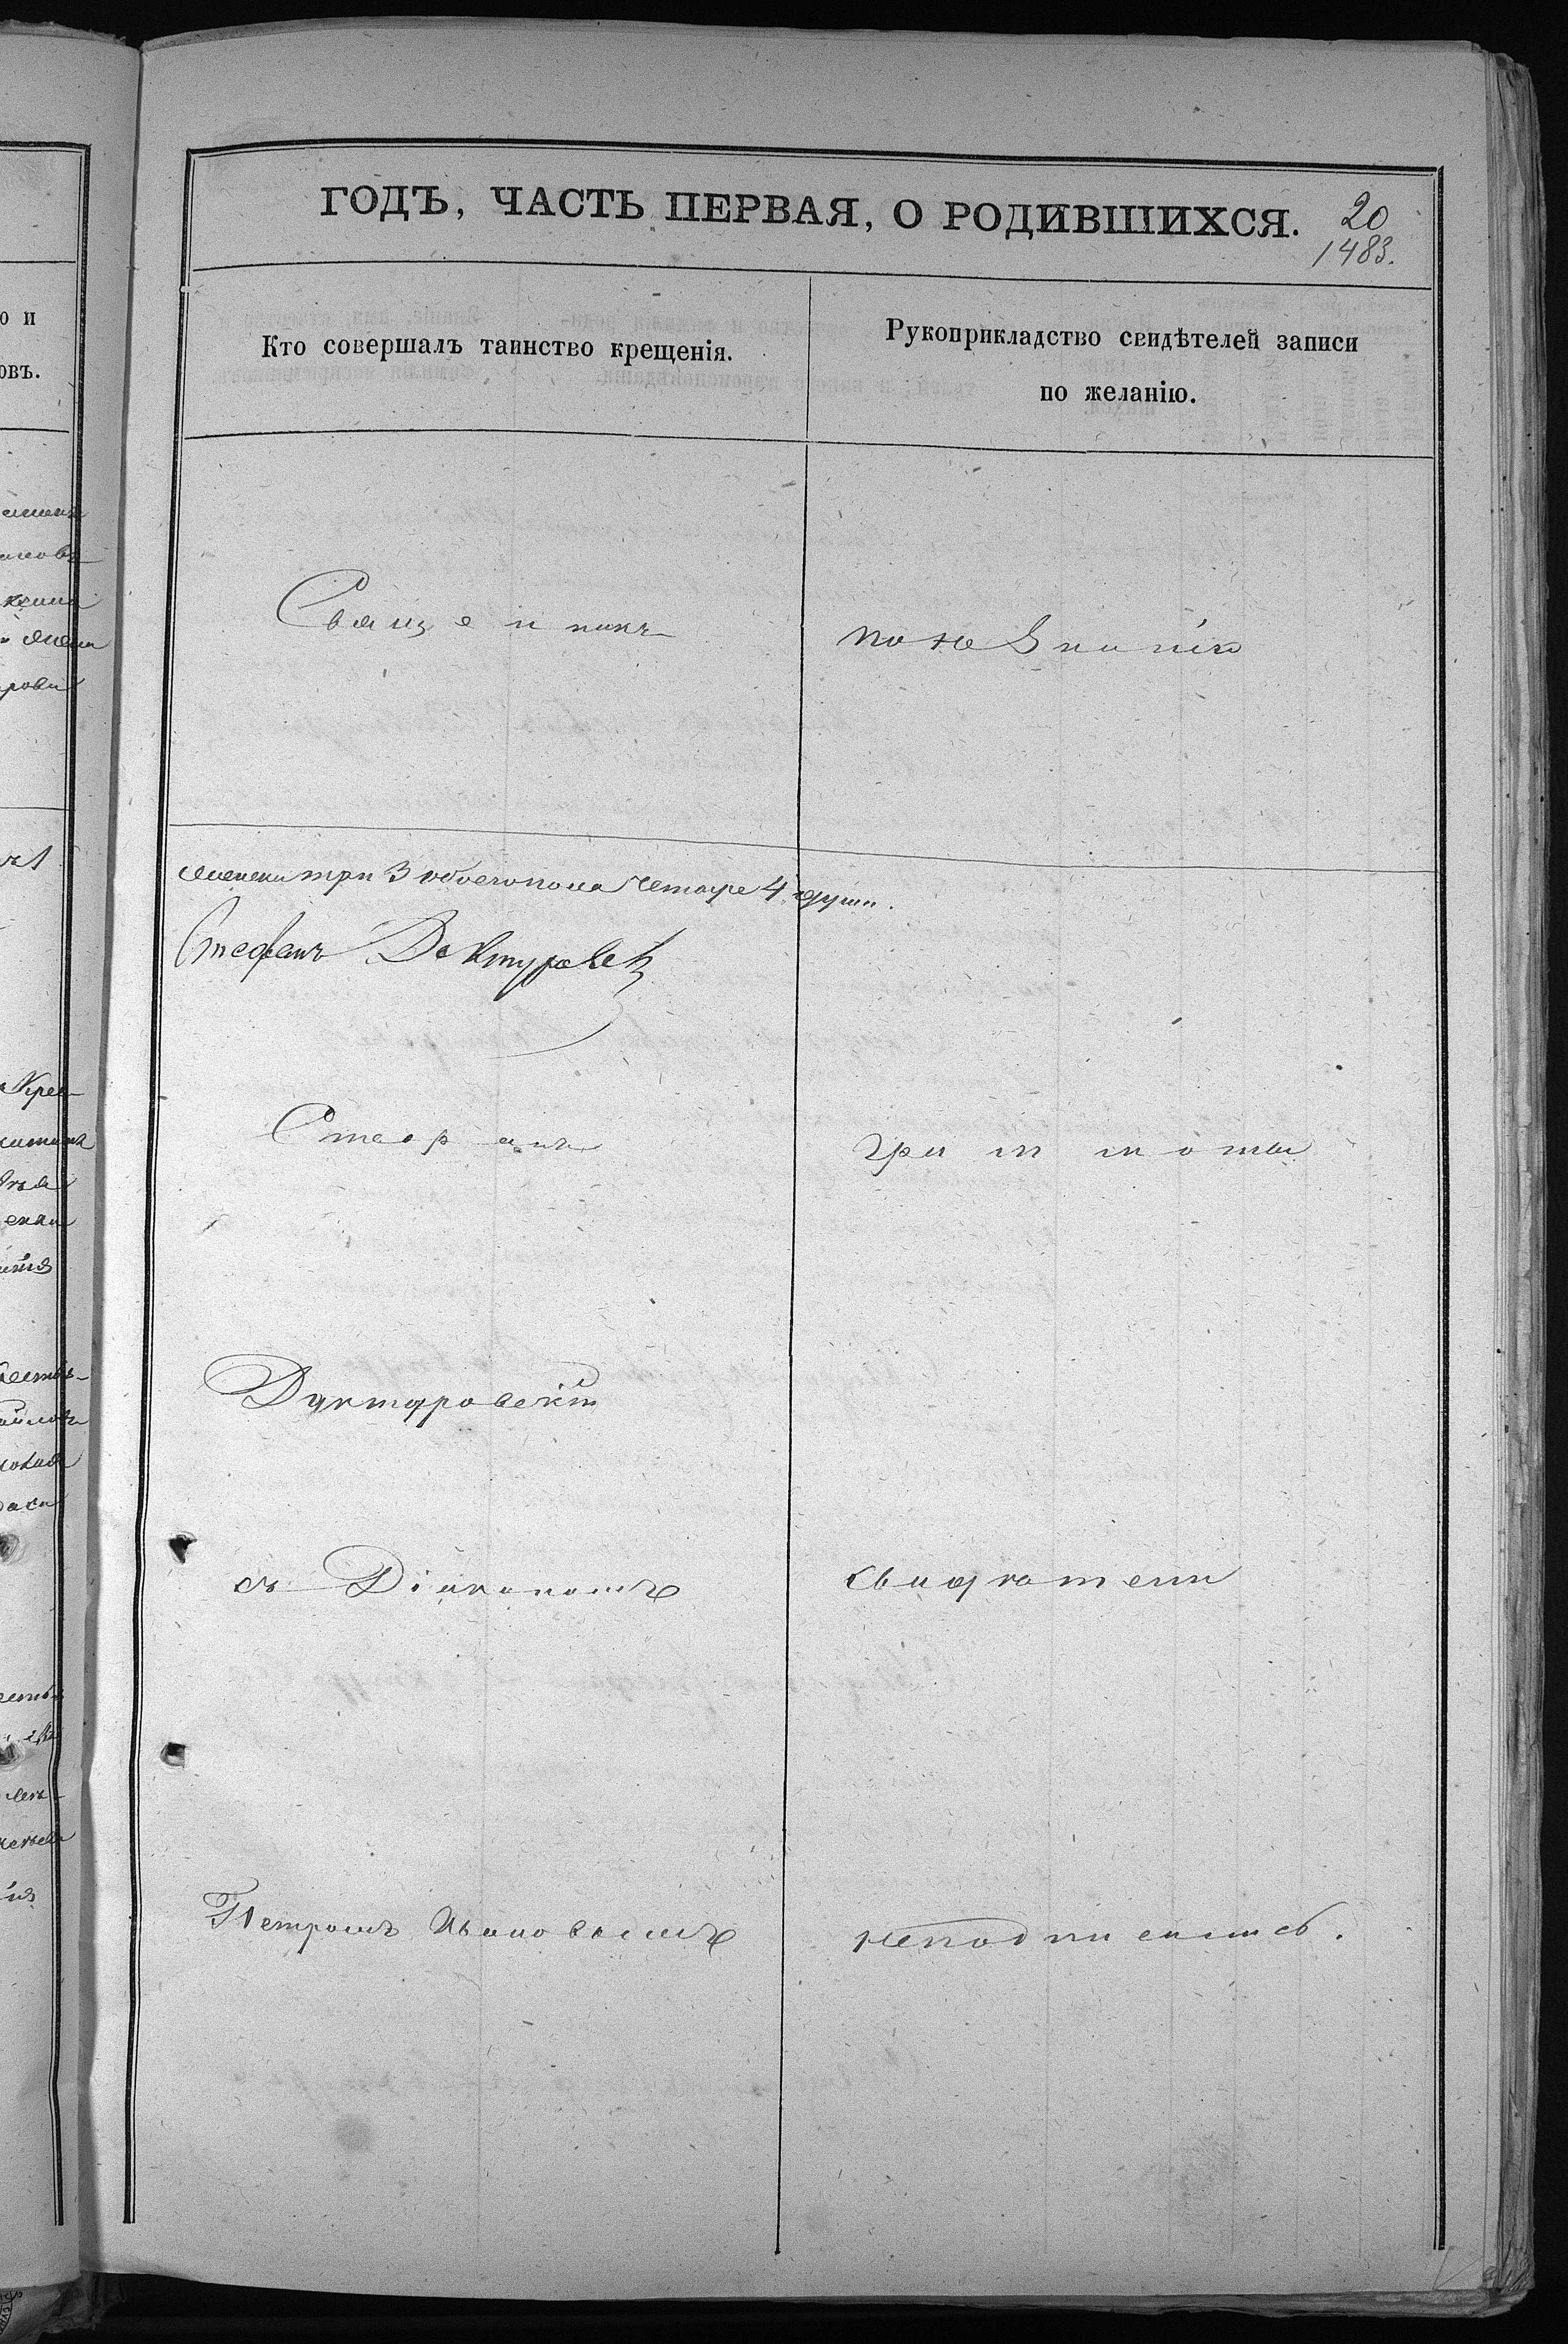 ГОДЪ, ЧАСТЬ ПЕРВАЯ, О РОДИВШИХСЯ.
20
1483.
Кто совершалъ таинство крещенія.
Рукоприкладство свидѣтелей записи
по желанію.
Священникъ
по незнанію
женска три 3 обоего пола четыре 4 души.
Стефанъ Доктуровск
Стефанъ
граммоты
Дуктуровскій
съ Діакономъ
свидѣтели
Петромъ Ивановымъ
неподписались.
о и
овъ.